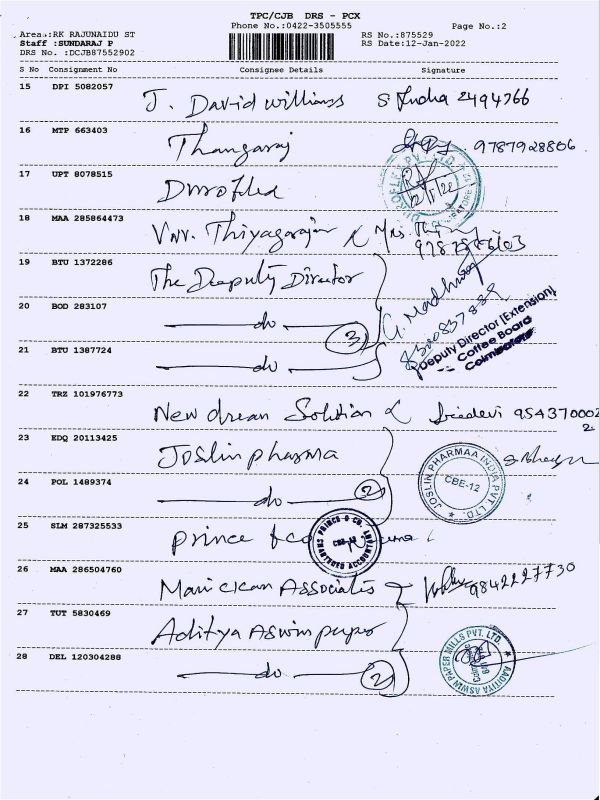 TPC/CJB DRS - PCX
Phone No.:0422-3505555
Page No.:2
Area.:RK RAJUNAIDU ST
RS No.:875529
Staff :SUNDARAJ P
RS Date:12-Jan-2022
DRS No. :DCJB87552902
S No Consignment No Consignee Details Signature
15 DPI 5082057
J. David williams S India 2494766
16 MTP 663403
Thangaraj 9787928806
17 UPT 8078515
12/1/22
18 MAA 285864473
Thiyagarajan
19 BTU 1372286
The Deeputy Director
20 BOD 283107
do 3
G. Madhu
21 BTU 1387724
do
Deputy Director [Extension]
Coffee Board
Coimbatore
22 TRZ 101976773
New dream Solution Sridevi 954370002
2
23 EDQ 20113425
Joslin pharma
JOSLIN PHARMAA INDIA PVT. LTD.
CBE-12
24 POL 1489374
do 2
25 SLM 287325533
prince & co
PRINCE & CO. CHARTERED ACCOUNTANTS
26 MAA 286504760
Manickam Associatis 9842227730
27 TUT 5830469
Aditya Aswin paper
AADITIYA ASWIN PAPER MILLS PVT. LTD.
28 DEL 120304288
do 2